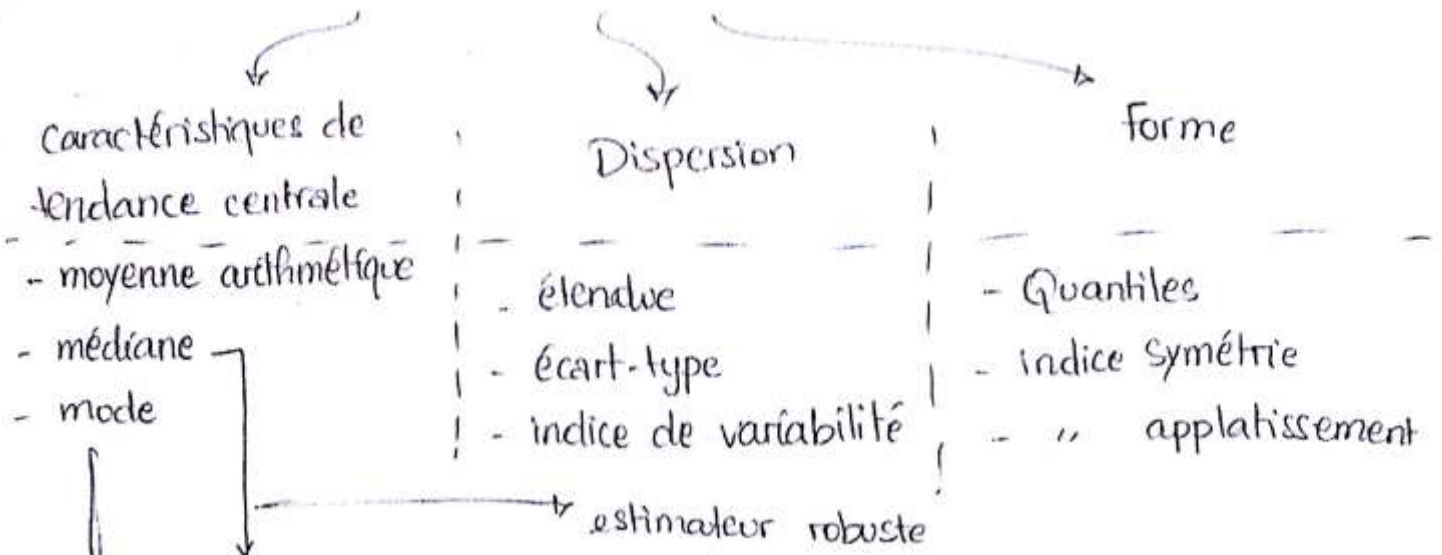 caractéristiques de
tendance centrale
- moyenne arithmétique
- médiane
- mode
Dispersion
- étendue
- écart-type
- indice de variabilité
forme
- Quantiles
- indice symétrie
- " applatissement
estimateur robuste